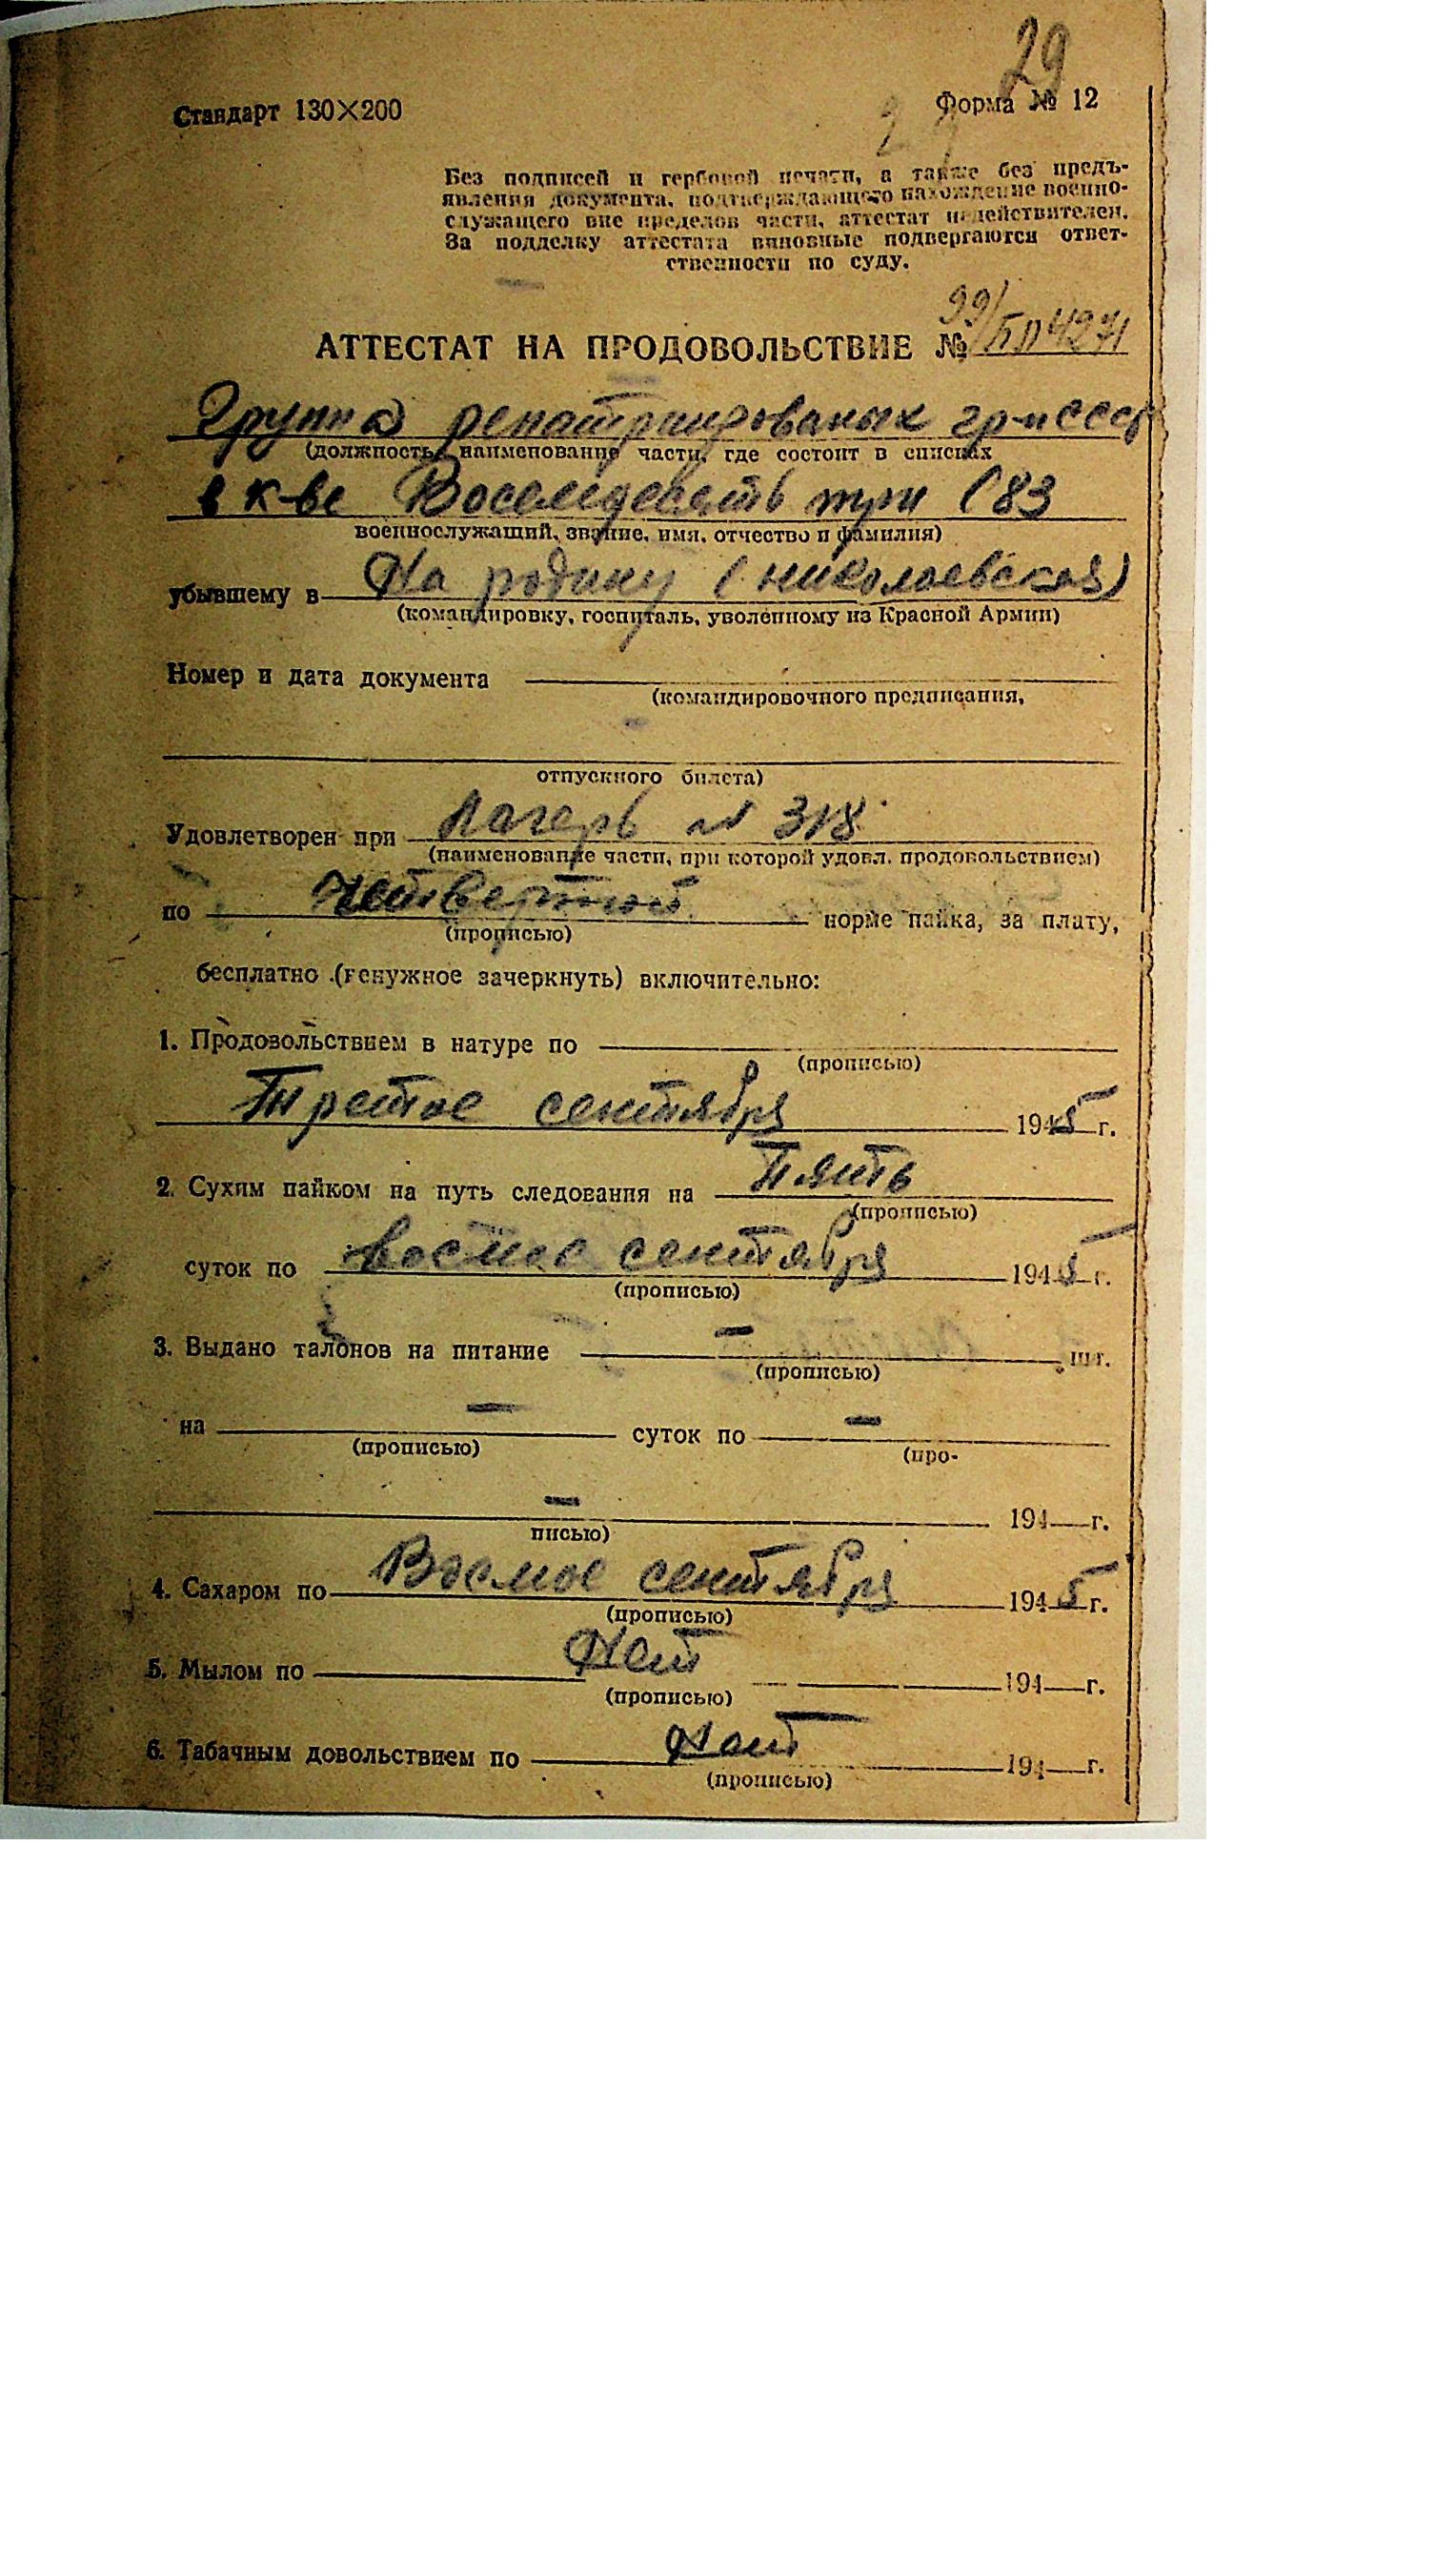 29
Стандарт 130×200 Форма № 12
Без подписей и гербовой печати, а также без предъ-
явления документа, подтверждающего нахождение военно-
служащего вне пределов части, аттестат недействителен.
За подделку аттестата виновные подвергаются ответ-
ственности по суду.
АТТЕСТАТ НА ПРОДОВОЛЬСТВИЕ № 99/БП4271
Группа репатрированых гр-н СССР
(должность, наименование части, где состоит в списках
в к-ве Восемдесять три (83
военнослужащий, звание, имя, отчество и фамилия)
убывшему в На родину (николаевская)
(командировку, госпиталь, уволенному из Красной Армии)
Номер и дата документа
(командировочного предписания,
отпускного билета)
Удовлетворен при Лагерь № 318
(наименование части, при которой удовл. продовольствием)
по четвертой норме пайка, за плату,
(прописью)
бесплатно (ненужное зачеркнуть) включительно:
1. Продовольствием в натуре по
(прописью)
Третое сентября 1945 г.
2. Сухим пайком на путь следования на Пять
(прописью)
суток по восмое сентября 1945 г.
(прописью)
3. Выдано талонов на питание — шт.
(прописью)
на — суток по —
(прописью) (про-
— 194 г.
писью)
4. Сахаром по Восмое сентября 1945 г.
(прописью)
5. Мылом по Нет 194 г.
(прописью)
6. Табачным довольствием по Нет 194 г.
(прописью)